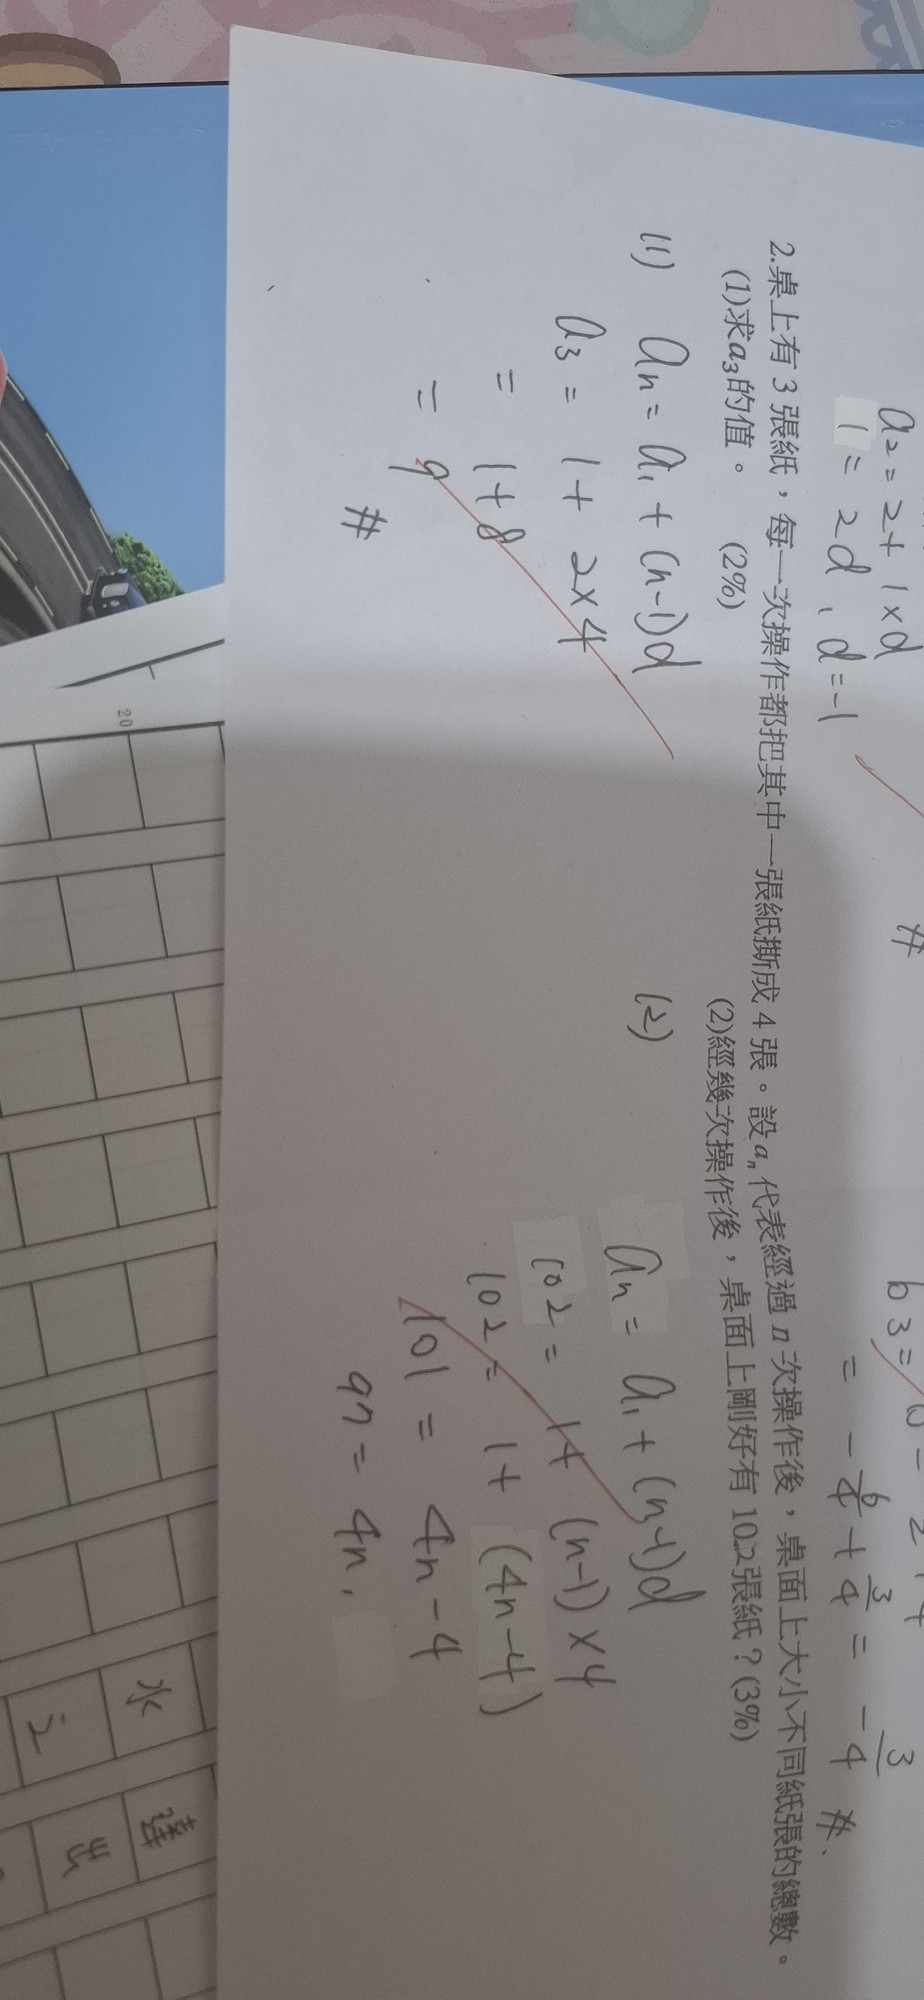 a₂ = 2 + 1×d
1 = 2d, d = -1
#
= -6/4 + 3/4 = -3/4 #
2.桌上有 3 張紙，每一次操作都把其中一張紙撕成 4 張。設aₙ代表經過 n 次操作後，桌面上大小不同紙張的總數。
(1)求a₃的值。 (2%)
(2)經幾次操作後，桌面上剛好有 102張紙？(3%)
(1) aₙ = a₁ + (n-1)d
a₃ = 1 + 2×4
= 1 + 8
= 9
#
(2) aₙ = a₁ + (n-1)d
102 = 1 + (n-1)×4
102 = 1 + (4n-4)
101 = 4n-4
97 = 4n,
20
水
達